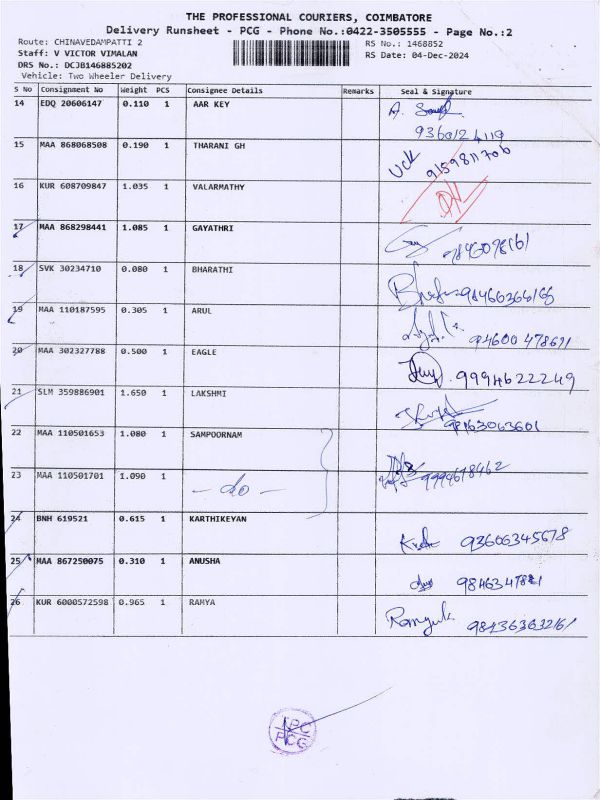 THE PROFESSIONAL COURIERS, COIMBATORE
Delivery Runsheet - PCG - Phone No.:0422-3505555 - Page No.:2
Route: CHINAVEDAMPATTI 2 RS No.: 1468852
Staff: V VICTOR VIMALAN RS Date: 04-Dec-2024
DRS No.: DCJB146885202
Vehicle: Two Wheeler Delivery
S No Consignment No Weight PCS Consignee Details Remarks Seal & Signature
14 EDQ 20606147 0.110 1 AAR KEY A.
9360124119
15 MAA 868068508 0.190 1 THARANI GH UCK 9159811706
16 KUR 608709847 1.035 1 VALARMATHY
17 MAA 868298441 1.085 1 GAYATHRI
18 SVK 30234710 0.080 1 BHARATHI
19 MAA 110187595 0.305 1 ARUL 94600478671
20 MAA 302327788 0.500 1 EAGLE 9994622249
21 SLM 359886901 1.650 1 LAKSHMI 98163063601
22 MAA 110501653 1.080 1 SAMPOORNAM
9994678462
23 MAA 110501701 1.090 1 - do -
24 BNH 619521 0.615 1 KARTHIKEYAN 93606345678
25 MAA 867250075 0.310 1 ANUSHA
26 KUR 6000572598 0.965 1 RAMYA
TPC
PCG